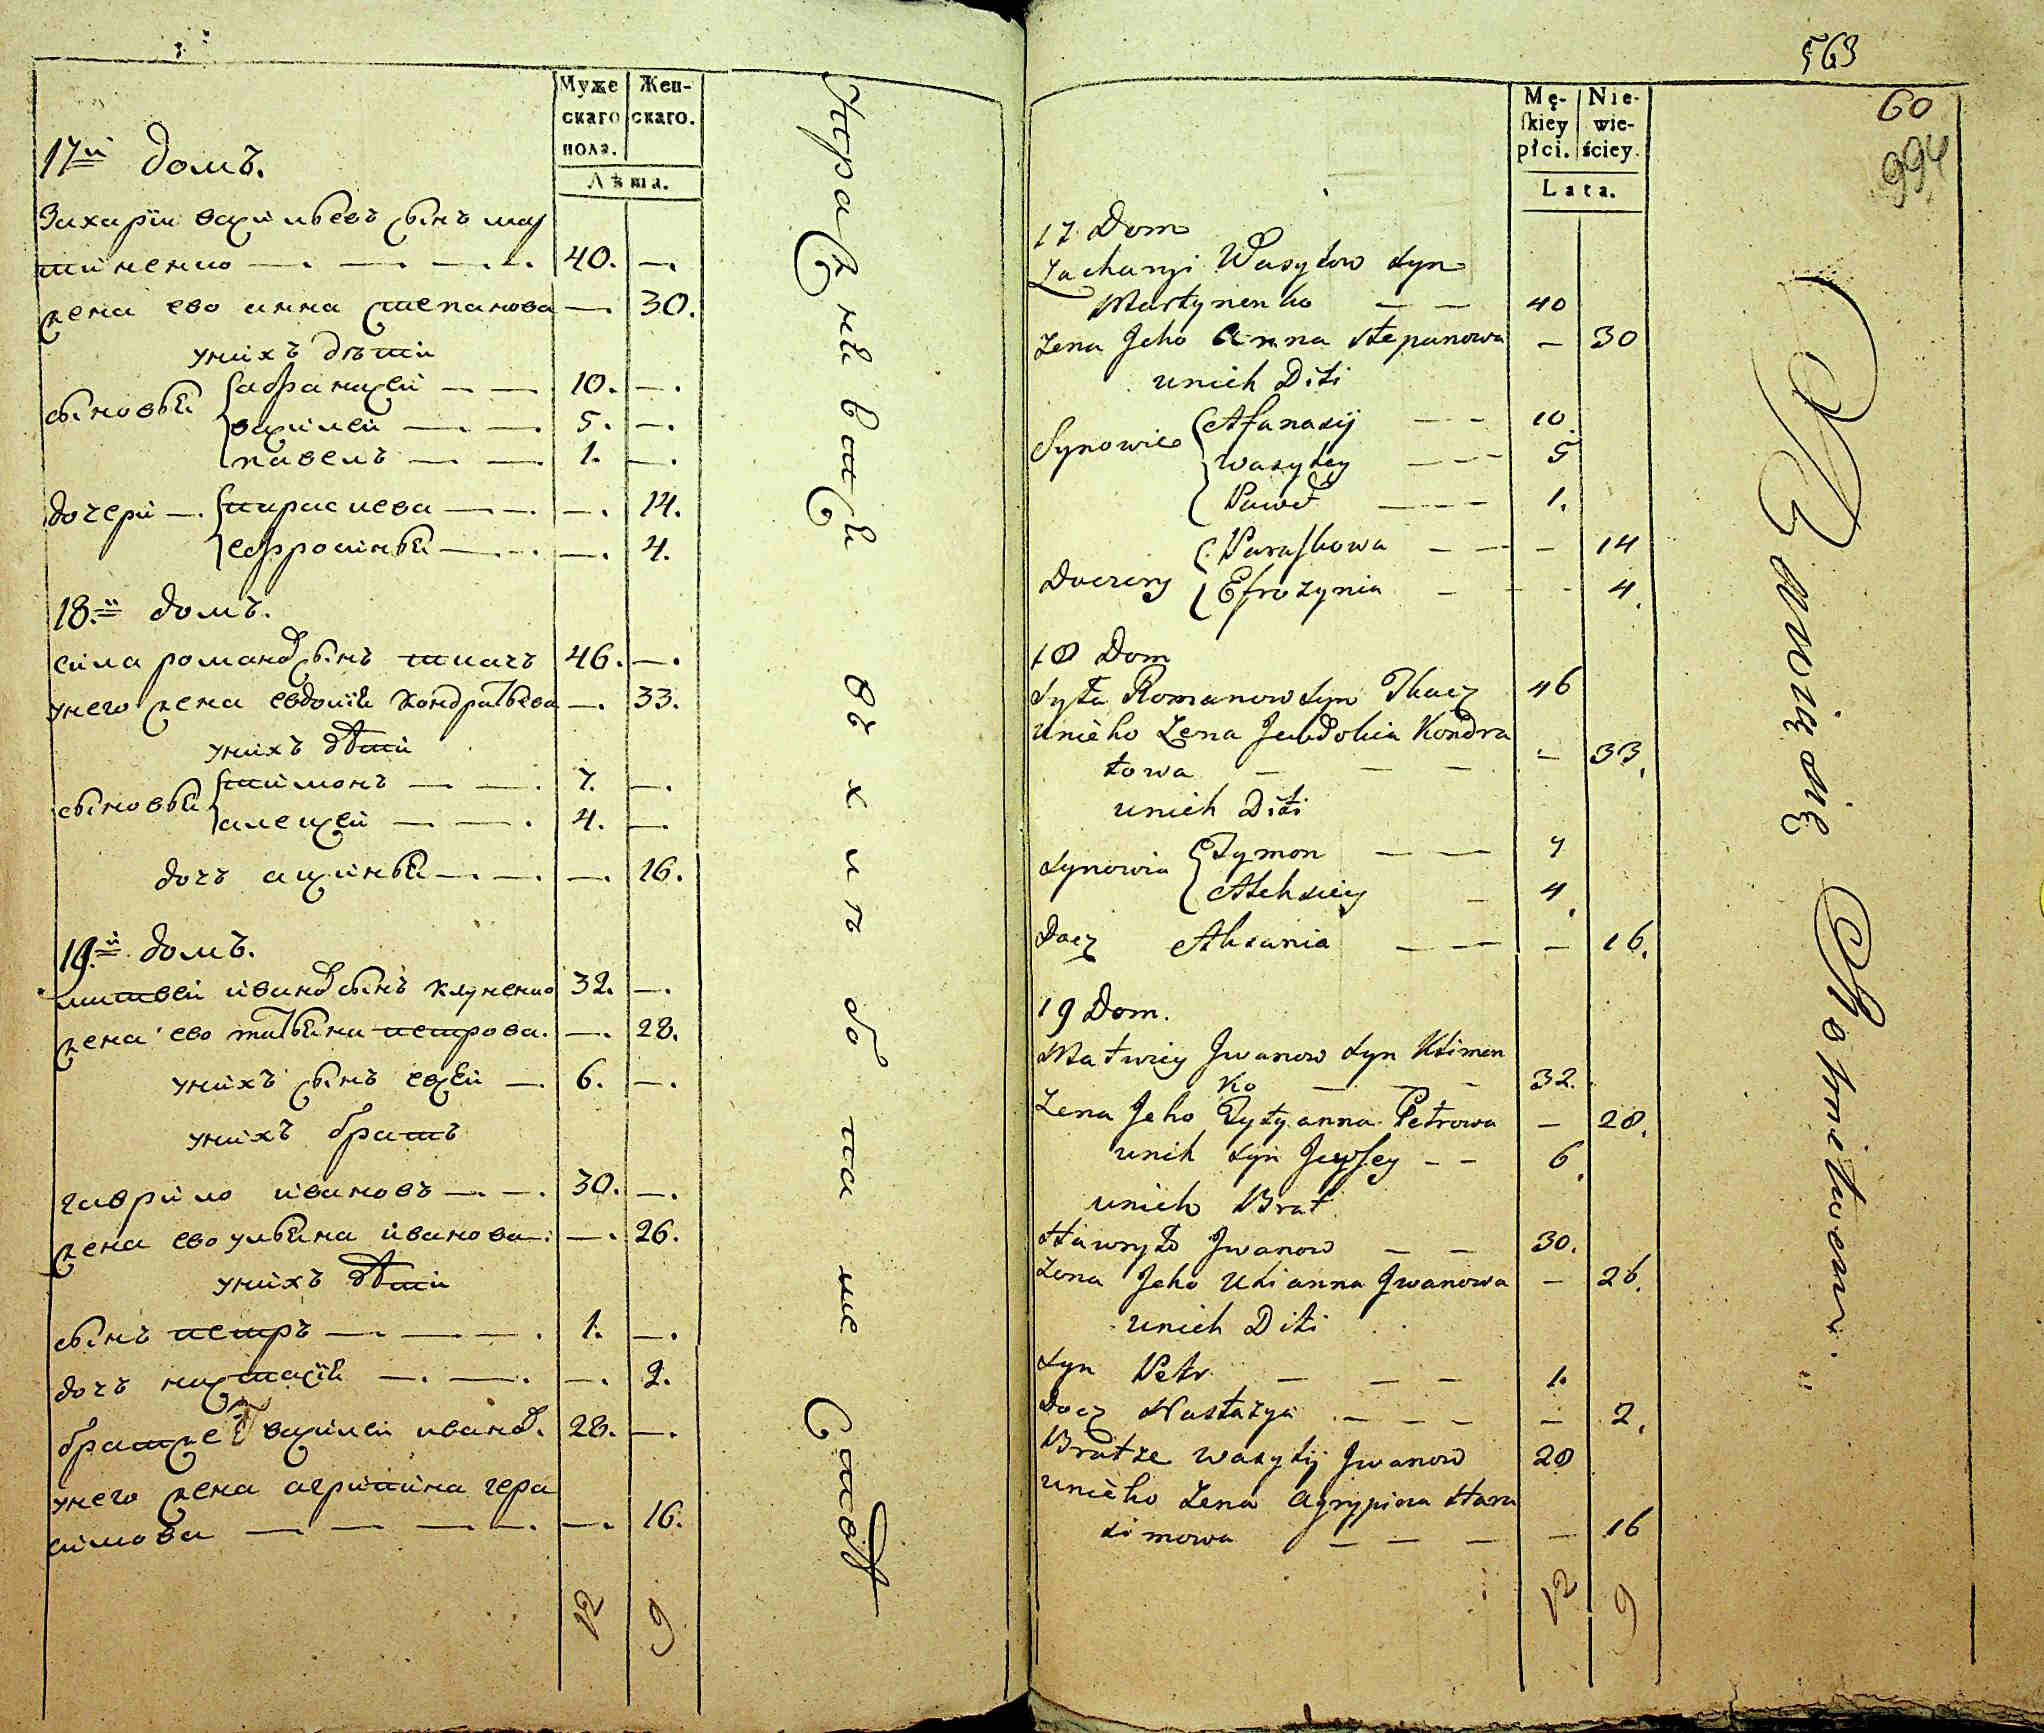 Муже
скаго
пола.
Жен-
скаго.
Лѣта.
17й домъ.
Захарiи васильевъ сынъ мар
тиненко — — — — 40. —.
жена ево анна степанова — 30.
унихъ дѣти
сыновьи
афанасей — — 10. —.
василей — — 5. —.
павелъ — — 1. —.
дочери —
парасцева — — —. 14.
ефросиньи — — —. 4.
18.й домъ.
сила романов сынъ ткачъ 46. —.
унего жена евдокiи кондратьева —. 33.
унихъ дѣти
сыновьи
тимонъ — — 7. —.
алексей — — 4. —.
дочъ аксиньи — — —. 16.
19.й домъ.
матвей иванов сынъ клименко 32. —.
жена ево татьяна петрова. —. 28.
унихъ сынъ евсей — 6. —.
унихъ братъ
гаврило ивановъ — — 30. —.
жена ево ульяна иванова. —. 26.
унихъ дѣти
сынъ петръ — — — 1. —.
дочъ настасiи — — —. 2.
братже василей иванов. 28. —.
унего жена агрипина гера
симова — — — — —. 16.
12 9
563
60
994
Mę-
skiey
płci.
Nie-
wie-
ściey.
Lata.
17 Dom
Zacharyi Wasylow syn
Martynenko — — 40
Zena Jeho Anna Stepanowa — 30
unich Diti
Synowie
Afanasij — — 10.
Wasyley — — 5
Paweł — — 1.
Doczery
Paraskowa — — — 14
Efrozynia — — — 4.
18 Dom
Syła Romanow syn Tkacz 46
unieho Zena Jewdokia Kondra
towa — — — — 33.
unich Diti
synowia
Tymon — — 7
Aleksiey — 4.
Docz Aksania — — — 16.
19 Dom.
Matwiey Jwanow syn Klimen
ko — — — 32.
Zena Jeho Tytyanna Petrowa — 28.
unich syn Jewsey — — 6.
unich Brat
Hawryło Jwanow — — 30.
Zona Jeho Ulianna Jwanowa — 26.
unich Diti
syn Petr — — — 1.
Docz Nastazya — — — — 2.
Bratze Wasylij Jwanow 28
unieho Zena Agrypina Hara
simowa — — — — 16
12 9